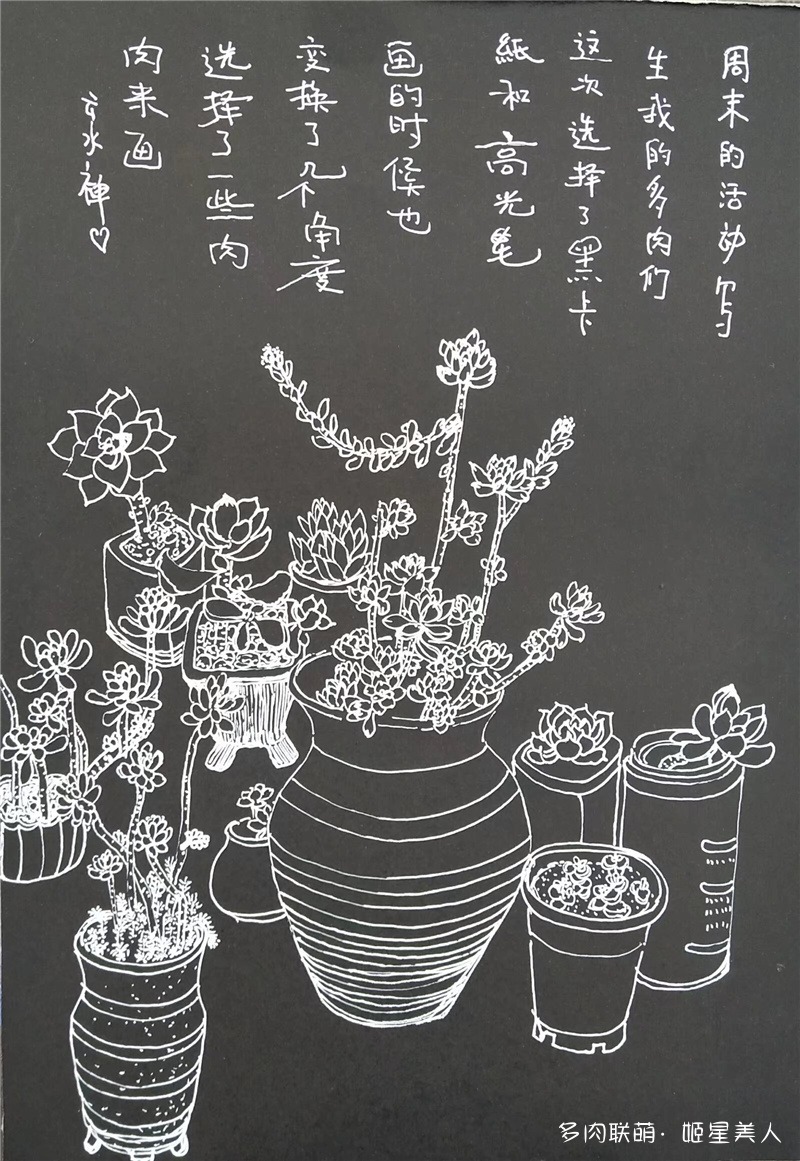 周末的活动写
生我的多肉们
这次选择了黑卡
紙和高光笔
画的时候也
变换了几个角度
选择了一些肉
肉来画
水禅♡
多肉联萌·姬星美人